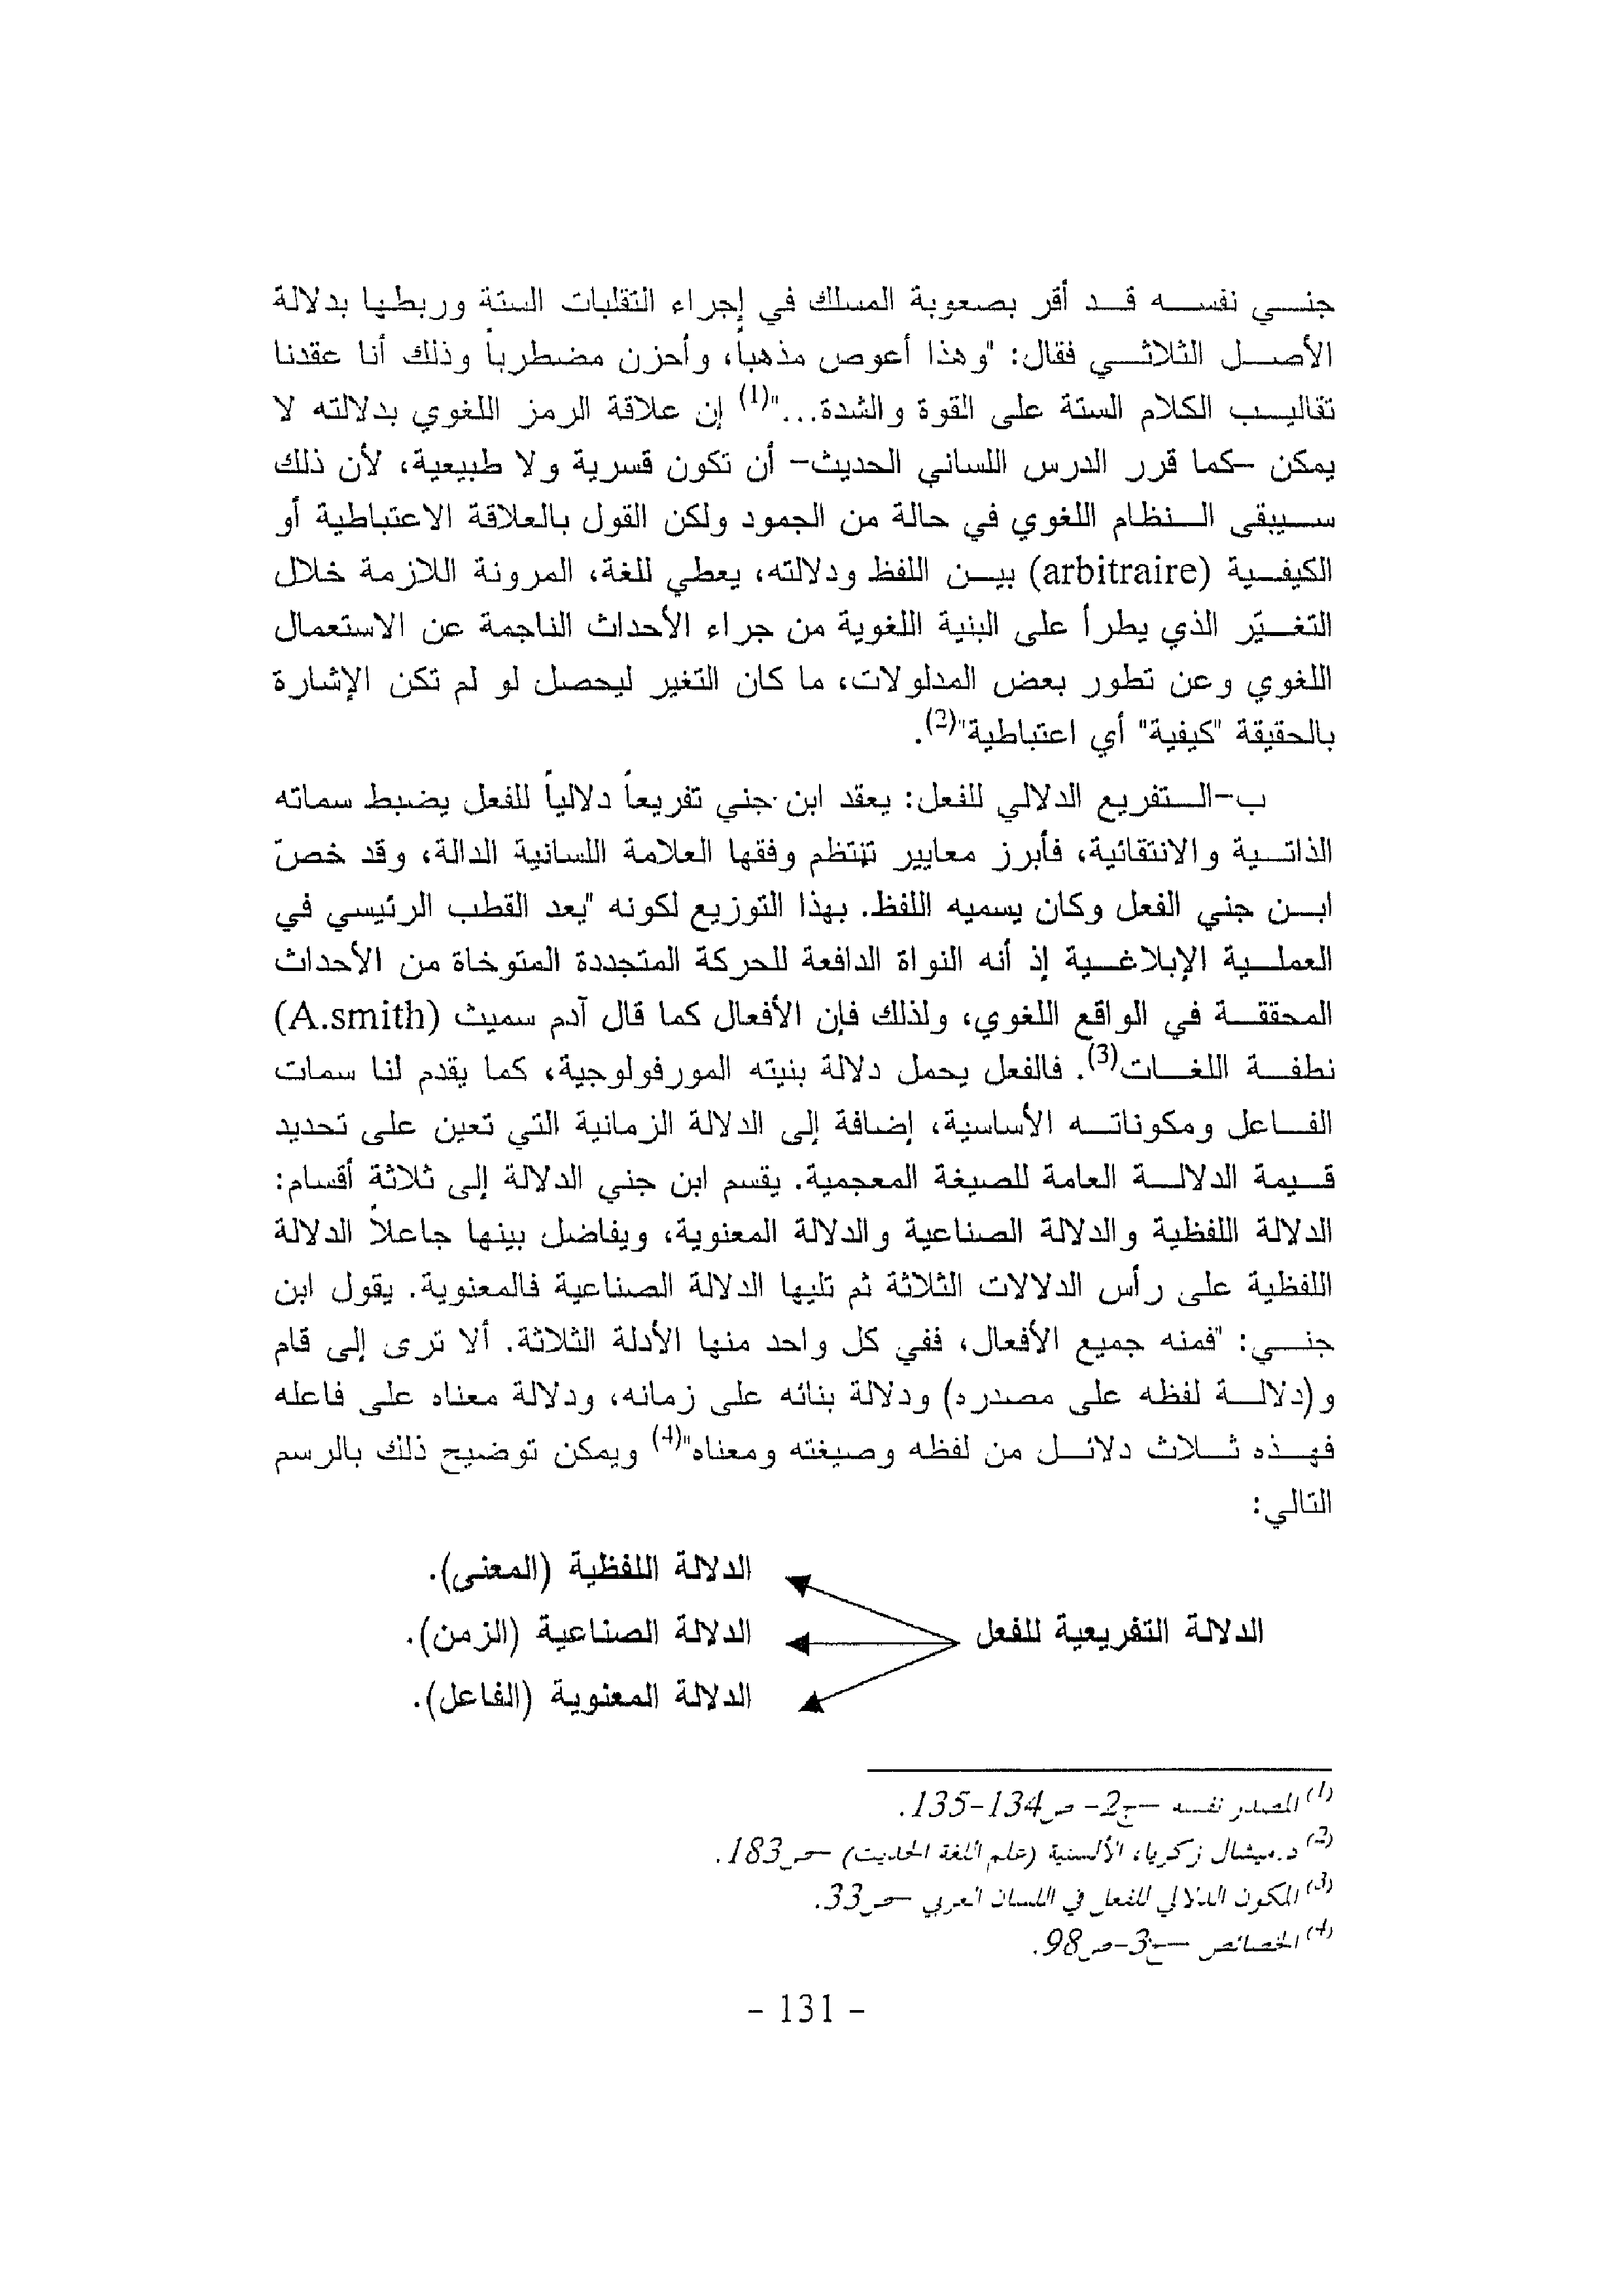 جني نفسه قد أقر بصعوبة المسلك في إجراء التقلبات الستة وربطها بدلالة
الأصل الثلاثي فقال: "وهذا أعوص مذهباً، وأحزن مضطرباً وذلك أنا عقدنا
تقاليب الكلام الستة على القوة والشدة..."(1) إن علاقة الرمز اللغوي بدلالته لا
يمكن -كما قرر الدرس اللساني الحديث- أن تكون قسرية ولا طبيعية، لأن ذلك
سيبقى النظام اللغوي في حالة من الجمود ولكن القول بالعلاقة الاعتباطية أو
الكيفية (arbitraire) بين اللفظ ودلالته، يعطي للغة، المرونة اللازمة خلال
التغيّر الذي يطرأ على البنية اللغوية من جراء الأحداث الناجمة عن الاستعمال
اللغوي وعن تطور بعض المدلولات، ما كان التغير ليحصل لو لم تكن الإشارة
بالحقيقة "كيفية" أي اعتباطية"(2).
ب-التفريع الدلالي للفعل: يعقد ابن جني تفريعاً دلالياً للفعل يضبط سماته
الذاتية والانتقائية، فأبرز معايير تنتظم وفقها العلامة اللسانية الدالة، وقد خصّ
ابن جني الفعل وكان يسميه اللفظ. بهذا التوزيع لكونه "يعد القطب الرئيسي في
العملية الإبلاغية إذ أنه النواة الدافعة للحركة المتجددة المتوخاة من الأحداث
المحققة في الواقع اللغوي، ولذلك فإن الأفعال كما قال آدم سميث (A.smith)
نطفة اللغات(3). فالفعل يحمل دلالة بنيته المورفولوجية، كما يقدم لنا سمات
الفاعل ومكوناته الأساسية، إضافة إلى الدلالة الزمانية التي تعين على تحديد
قيمة الدلالة العامة للصيغة المعجمية. يقسم ابن جني الدلالة إلى ثلاثة أقسام:
الدلالة اللفظية والدلالة الصناعية والدلالة المعنوية، ويفاضل بينها جاعلاً الدلالة
اللفظية على رأس الدلالات الثلاثة ثم تليها الدلالة الصناعية فالمعنوية. يقول ابن
جني: "فمنه جميع الأفعال، ففي كل واحد منها الأدلة الثلاثة. ألا ترى إلى قام
و(دلالة لفظه على مصدره) ودلالة بنائه على زمانه، ودلالة معناه على فاعله
فهذه ثلاث دلائل من لفظه وصيغته ومعناه"(4) ويمكن توضيح ذلك بالرسم
التالي:
الدلالة اللفظية (المعنى).
الدلالة التفريعية للفعل الدلالة الصناعية (الزمن).
الدلالة المعنوية (الفاعل).
(1) المصدر نفسه -ج2- ص134-135.
(2) د.ميشال زكرياء، الألسنية (علم اللغة الحديث) -ص183.
(3) المكون الدلالي للفعل في اللسان العربي -ص33.
(4) الخصائص -ج3-ص98.
- 131 -